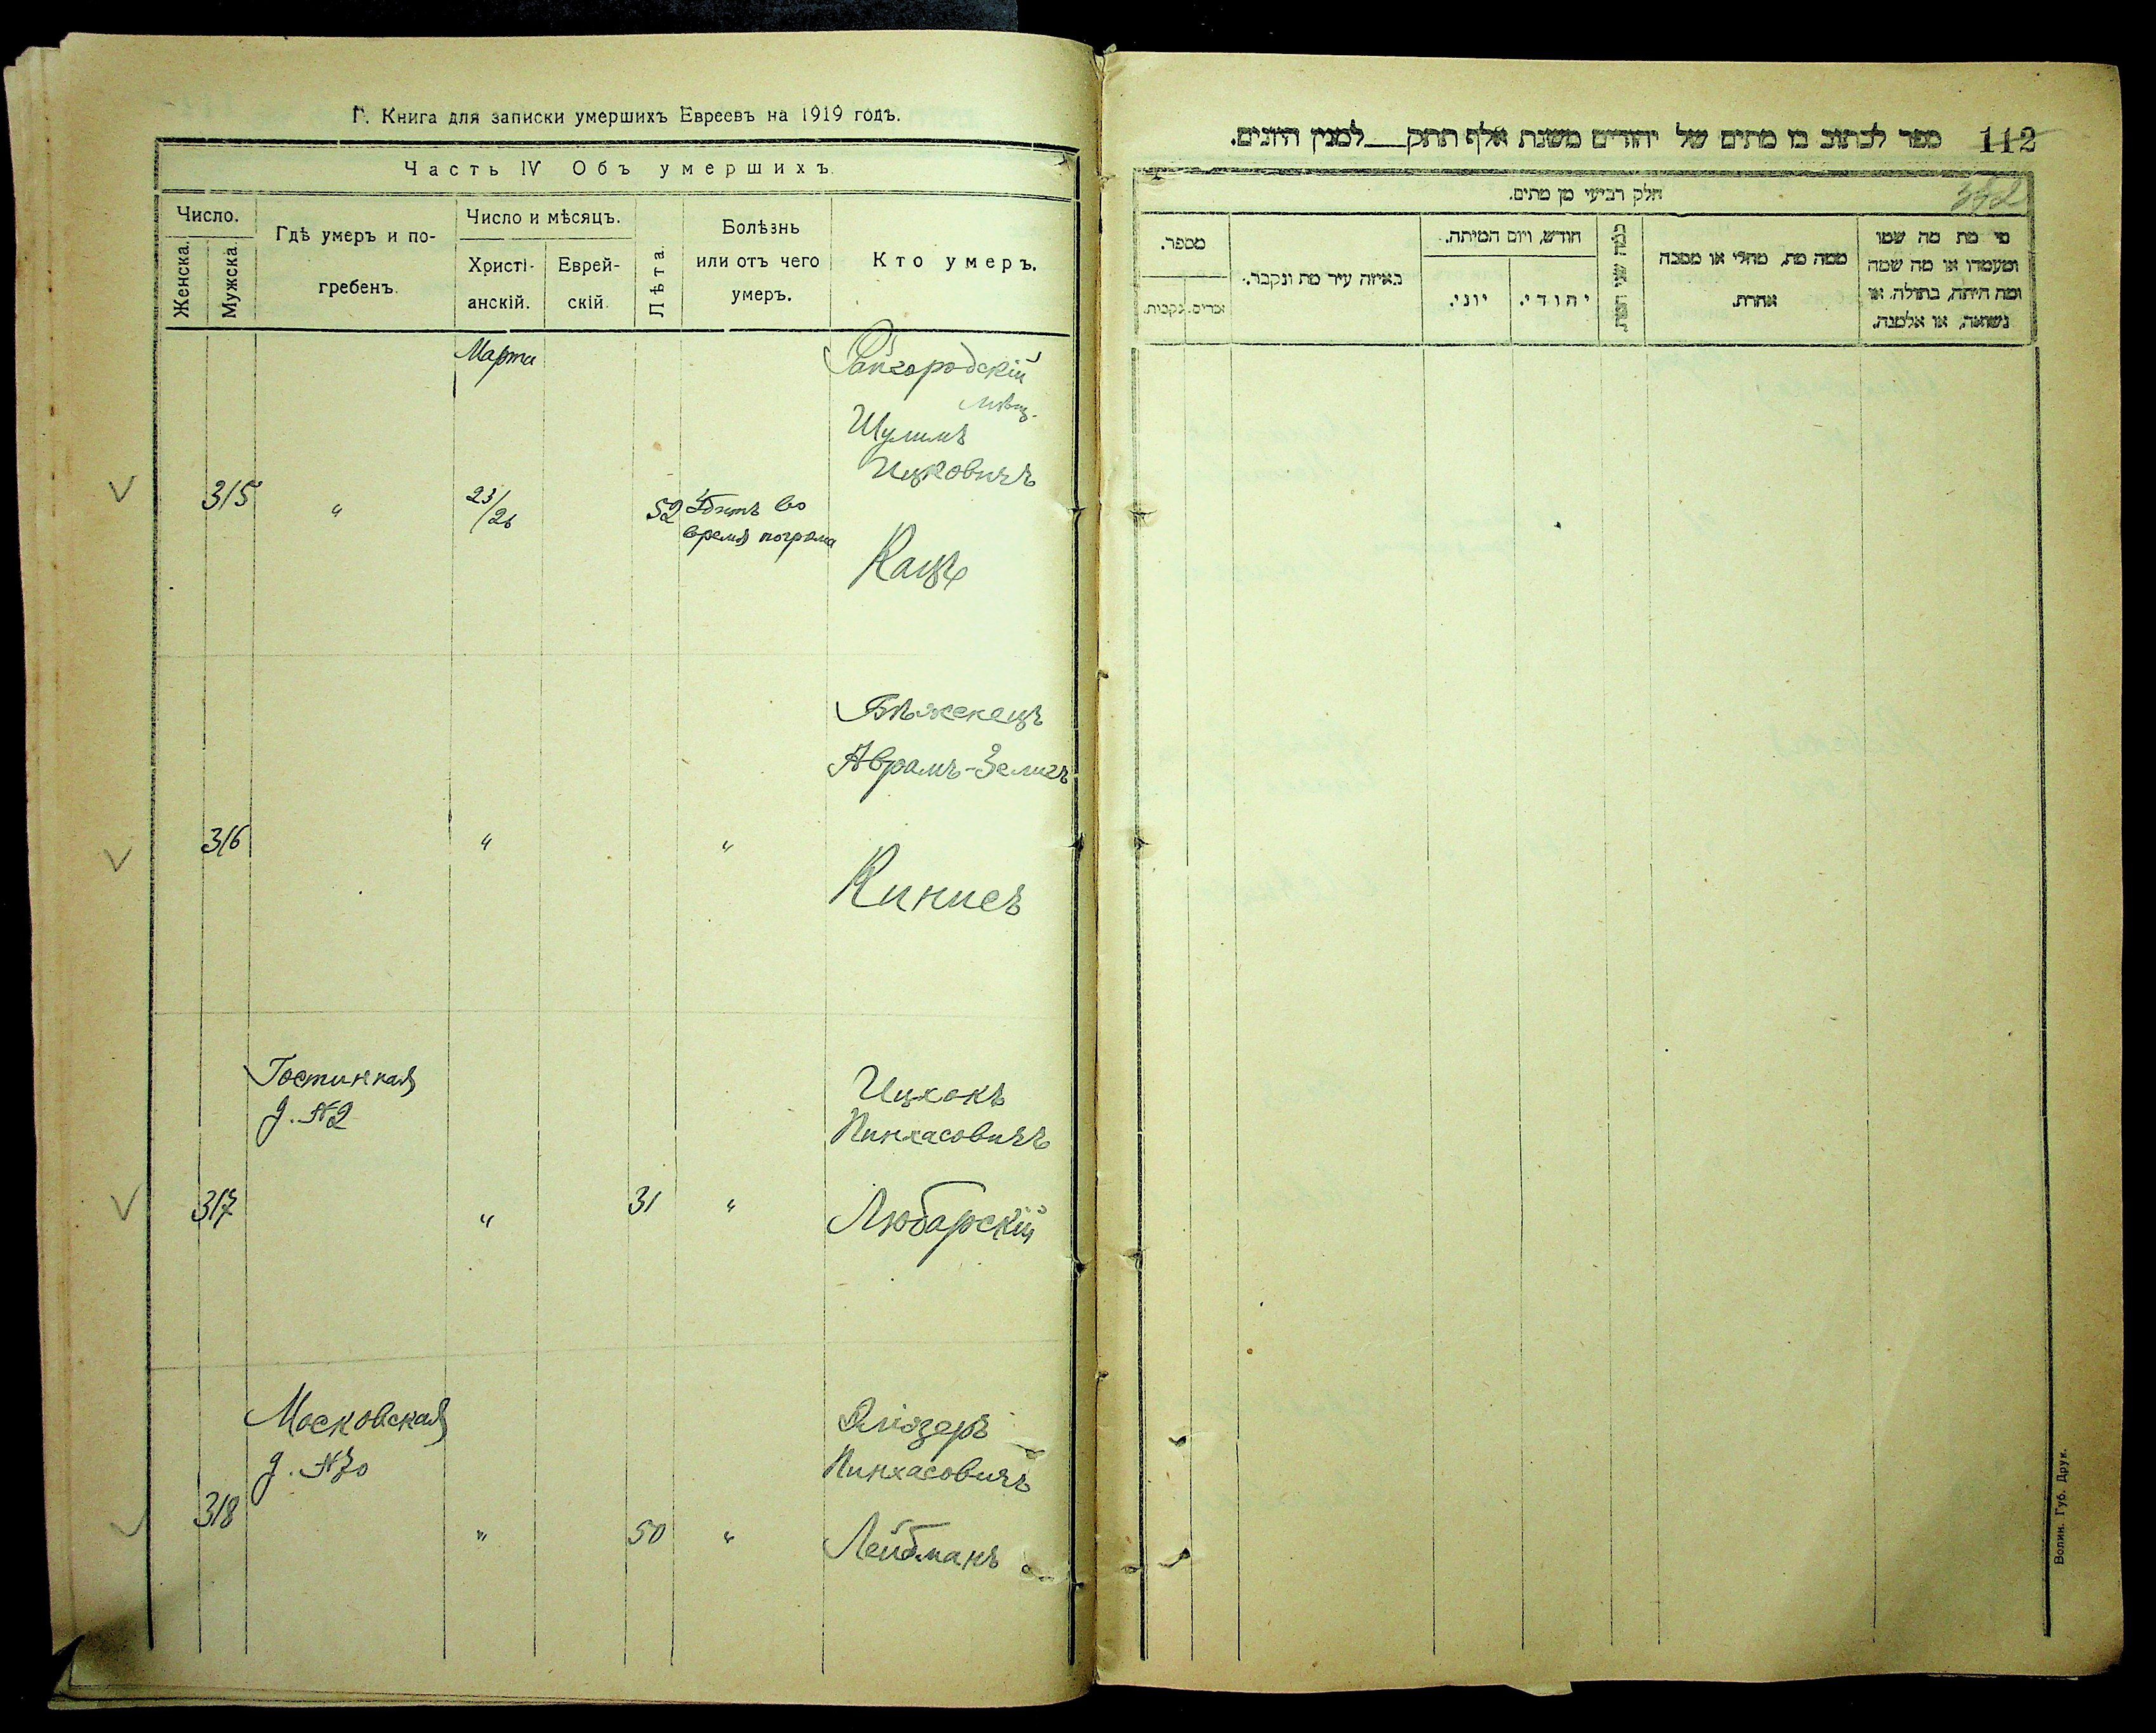 Г. Книга для записки умершихъ Евреевъ на 1919 годъ.
Часть IV Объ умершихъ.
Число.
Женска.
Мужска.
Гдѣ умеръ и по-
гребенъ.
Число и мѣсяцъ.
Христі-
анскій.
Еврей-
скій.
Лѣта.
Болѣзнь
или отъ чего
умеръ.
Кто умеръ.
Марта
Райгородскій
мѣщ.
Шулимъ
Ицковичъ
315
"
23/26
52
Убитъ во
время погрома
Кацъ
Бѣженецъ
Аврамъ-Зелигъ
316
"
"
Кинисъ
Гостинная
д. №2
Ицхокъ
Пинхасовичъ
317
"
31
"
Любарскій
Московская
д. №
Пинхасовичъ
318
"
50
"
Лейбманъ
112 ספר לכתוב בו מתים של יהודים משנת אלף תתק___למנין היונים.
חלק רביעי מן מתים.
352
מי מת מה שמו
ומעמדו או מה שמה
ומה היתה, בתולה, או
נשואה, או אלמנה.
ממה מת, מחלי או מסבה
אחרת.
חודש, ויום המיתה.
יהודי.
יוני.
באיזה עיר מת ונקבר.
מספר.
זכרים.
נקבות.
Волин. Губ. Друк.